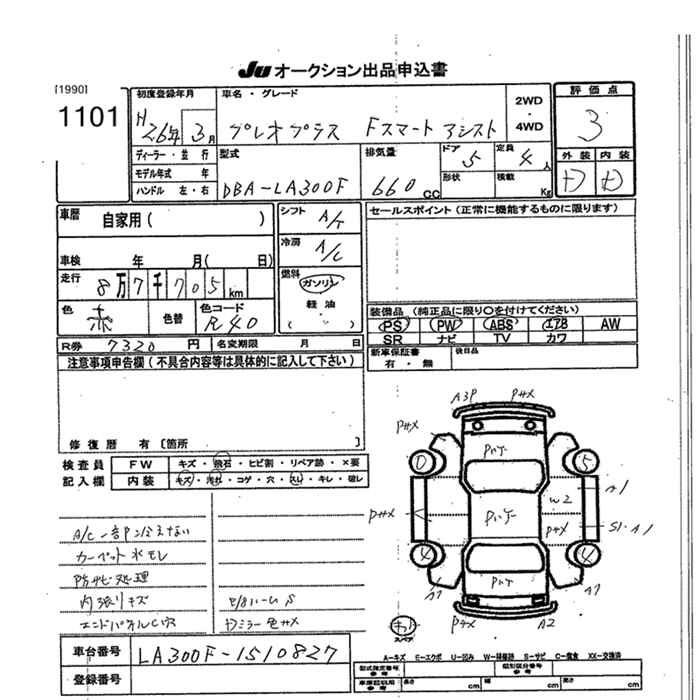 JU オークション出品申込書
[1990]
1101
初度登録年月
H26年 3月
車名・グレード
プレオプラス Fスマートアシスト
2WD
・
4WD
評価点
3
外装 内装
D D
ディーラー・並行
モデル年式 年
ハンドル 左・右
型式
DBA-LA300F
排気量
660 CC
ドア
5
定員
4人
形状
積載
Kg
車歴
自家用( )
車検 年 月( 日)
走行
8万7千705km
色
赤
色替
色コード
R40
シフト
A/T
冷房
A/C
燃料
ガソリン
軽油
( )
セールスポイント(正常に機能するものに限ります)
装備品(純正品に限り○を付けてください)
PS PW ABS エアB AW
SR ナビ TV カワ
新車保証書
有・無
後日品
R券 7320 円 名変期限 月 日
注意事項申告欄(不具合内容等は具体的に記入して下さい)
修復歴 有[箇所 ]
検査員
記入欄
FW キズ・飛石・ヒビ割・リペア跡・×要
内装 キズ・汚れ・コゲ・穴・スレ・キレ・破レ
カーペット水モレ
防サビ処理
内張りキズ
Dミラー色サメ
A3P Pサメ
Pサメ
Pハゲ
0 5
A1
W2
Pサメ Pハゲ
Pサメ S1・A1
4 4
Pハゲ
A1 A1
Pサメ A2
スペア
A-キズ E-エクボ U-凹み W-補修跡 S-サビ C-腐食 XX-交換済
車台番号
LA300F-1510827
登録番号
型式指定番号
参考
類別区分番号
参考
車庫証明用
参考
長さ cm 幅 cm 高さ cm